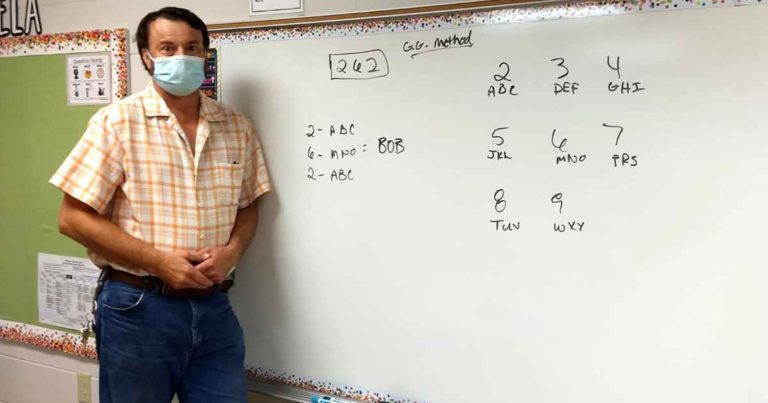 ELA
Question Words
G.G. Method
262
2 - ABC
6 - MNO : BOB
2 - ABC
2 3 4
ABC DEF GHI
5 6 7
JKL MNO PRS
8 9
TUV WXY